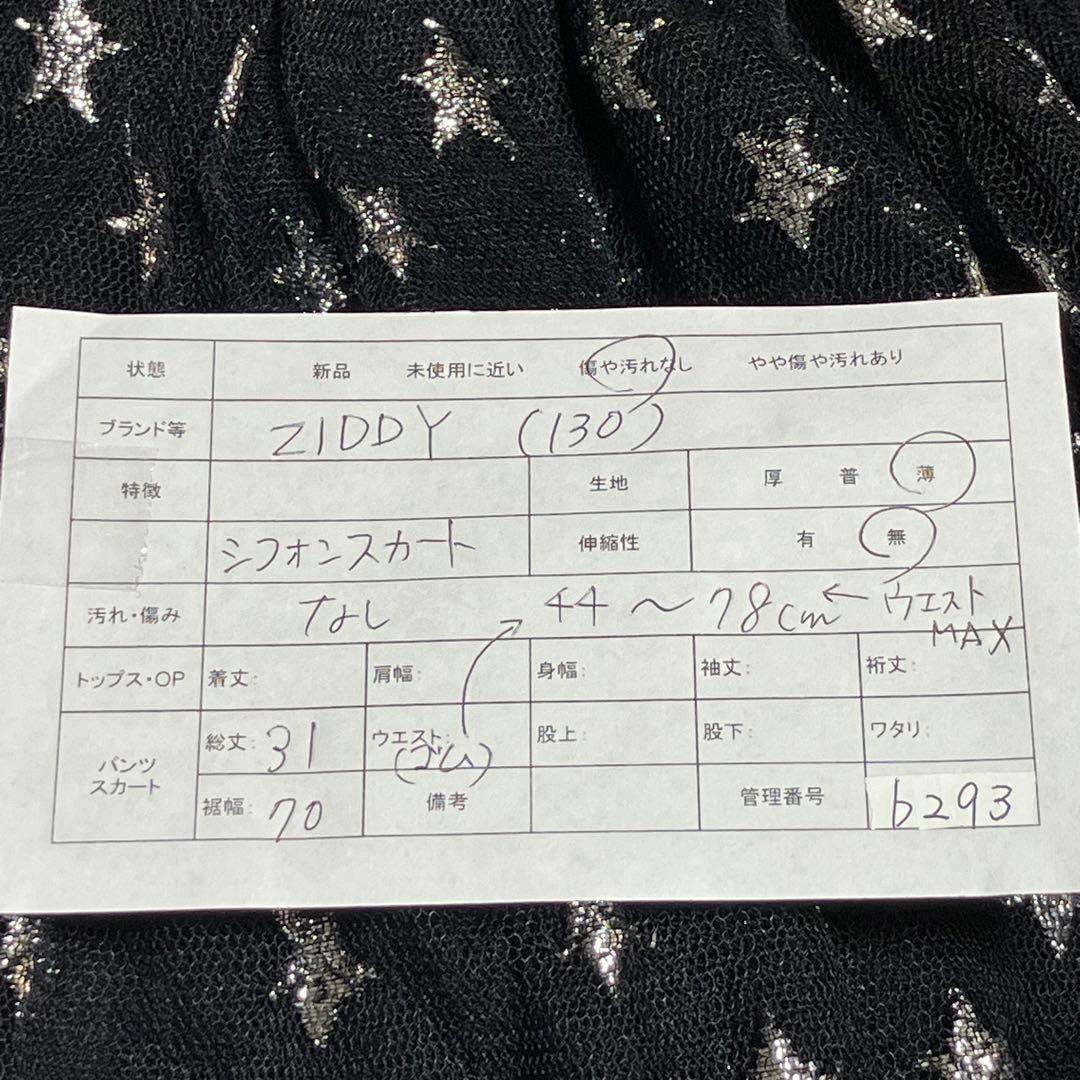 状態 新品 未使用に近い 傷や汚れなし やや傷や汚れあり
ブランド等 ZIDDY (130)
特徴 生地 厚 普 薄
シフォンスカート 伸縮性 有 無
汚れ・傷み なし 44～78cm ← ウエスト
MAX
トップス・OP 着丈: 肩幅: 身幅: 袖丈: 裄丈:
パンツ
スカート
総丈: 31 ウエスト: 股上: 股下: ワタリ:
(ゴム)
裾幅: 70 備考 管理番号 b293